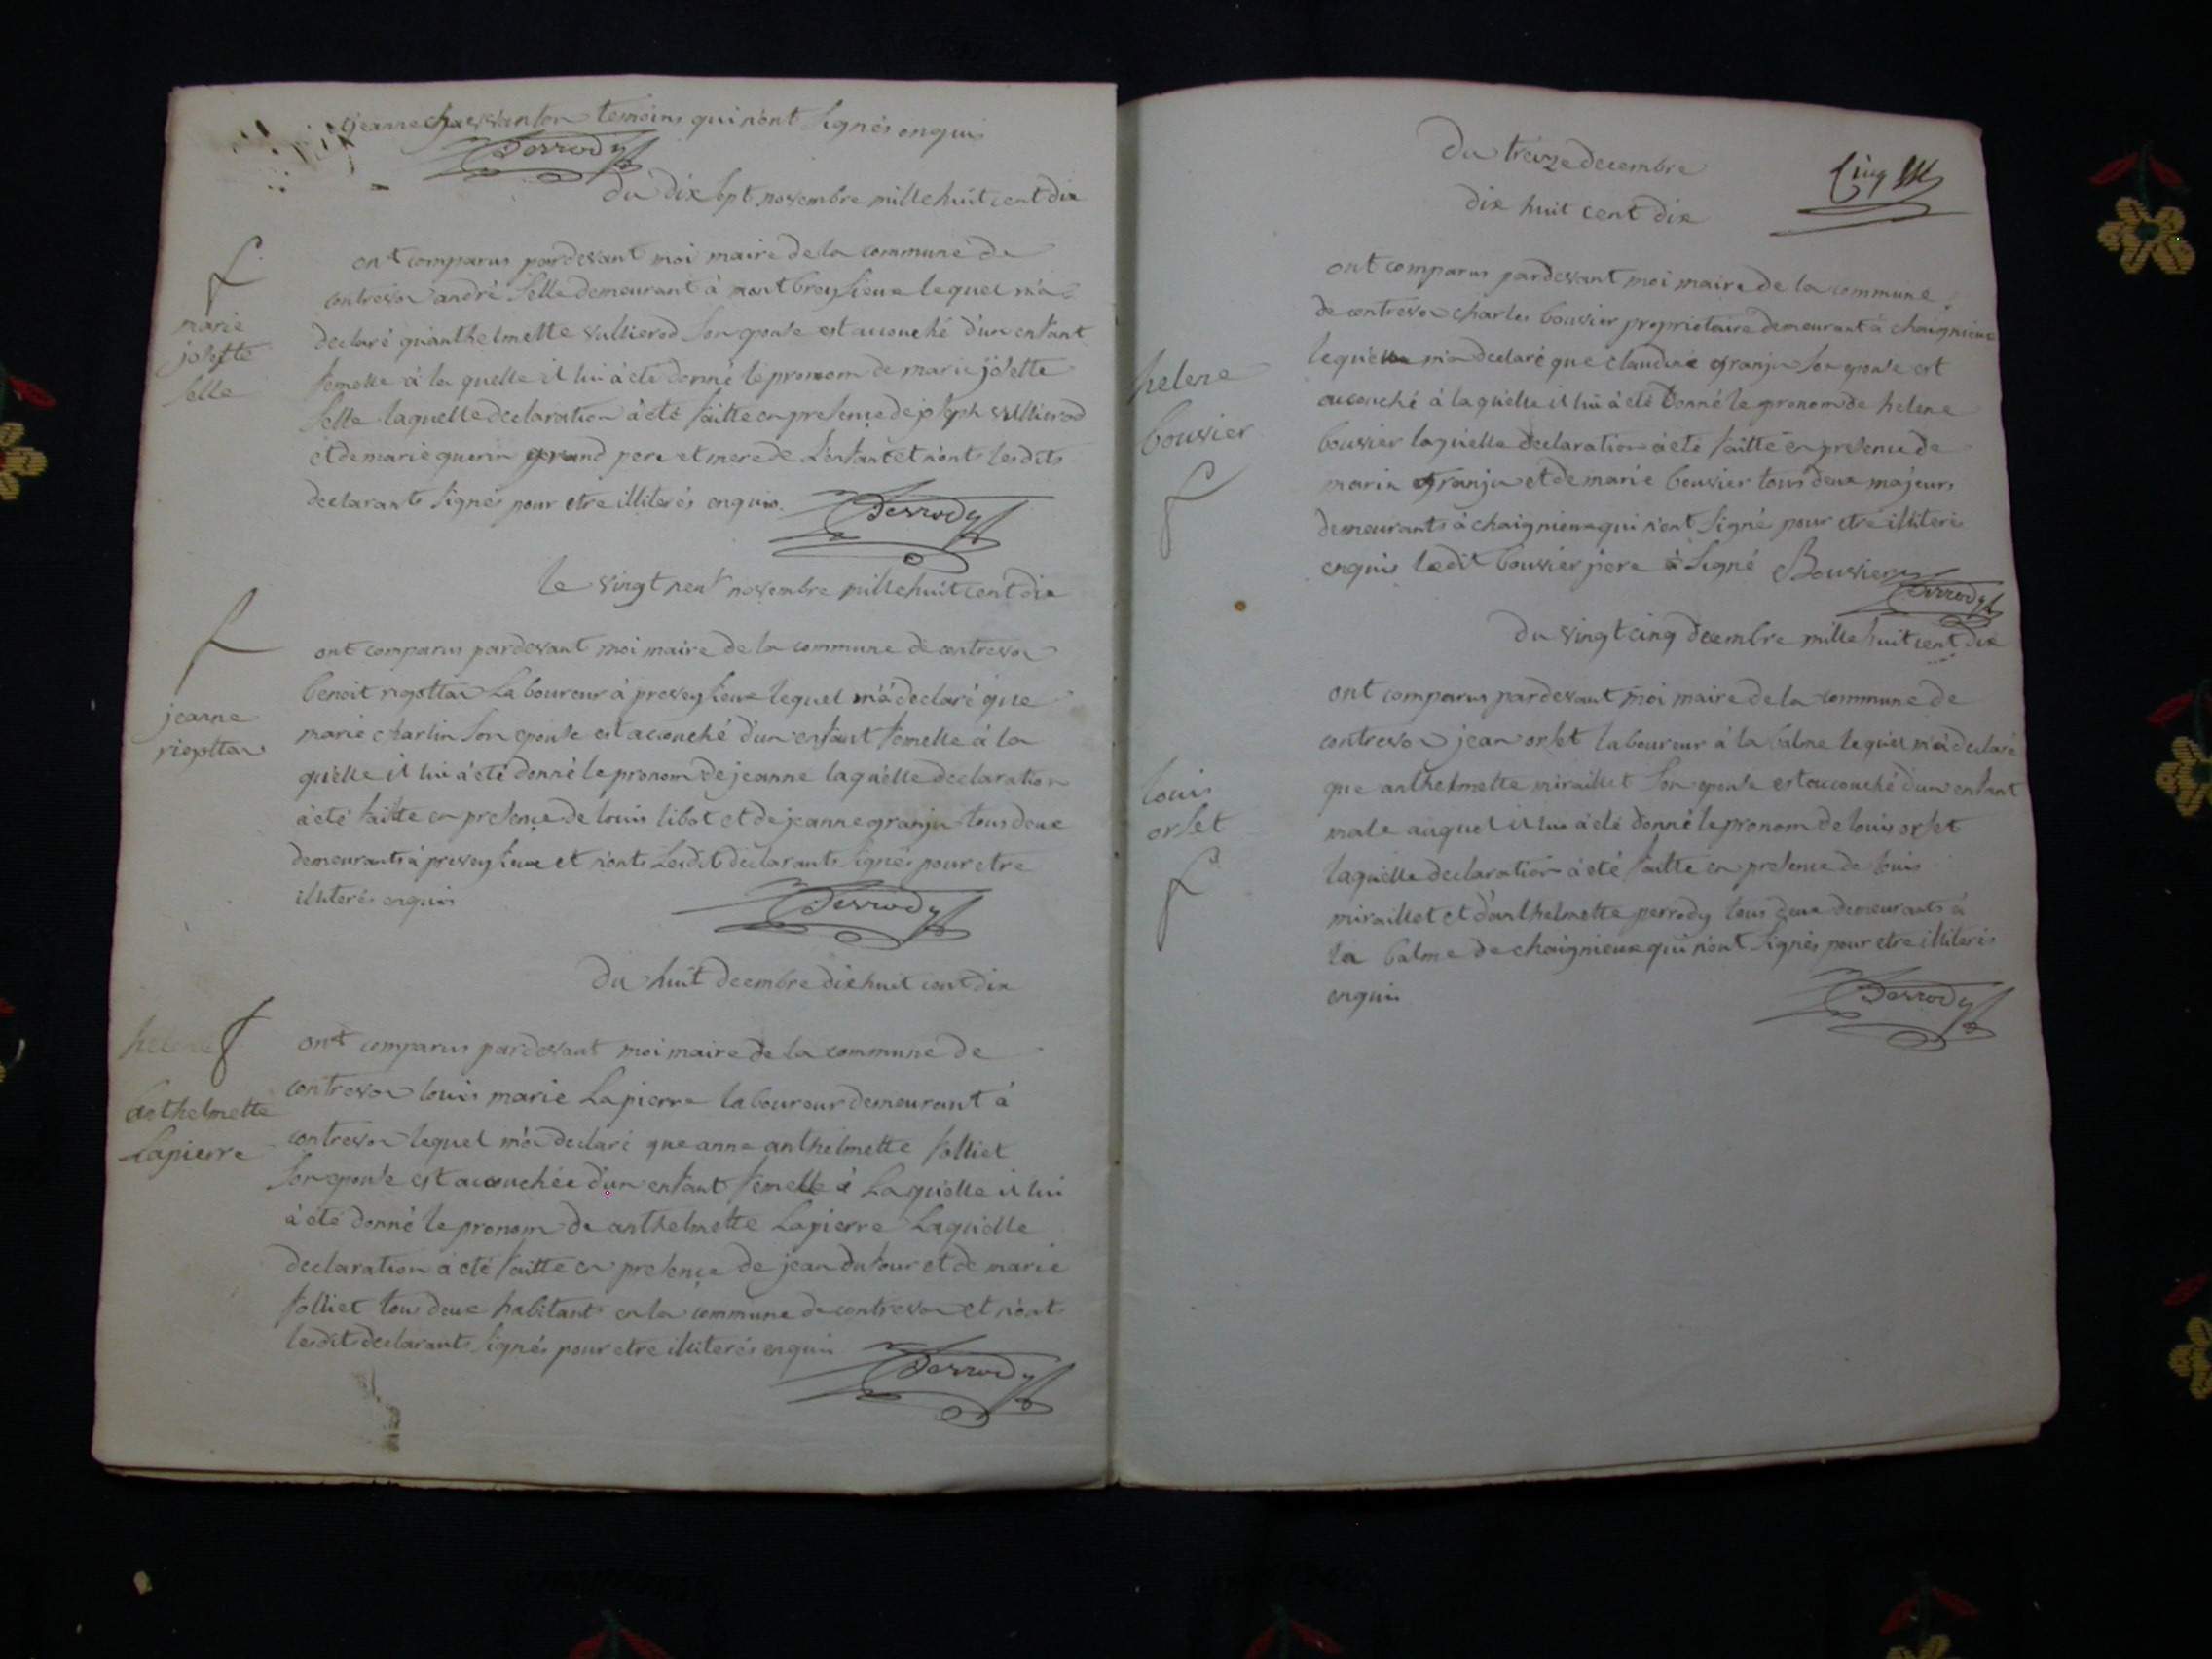 jeanne temoins qui n'ont signés enquis
Perrody
du dix sept novembre mille huit cent dix
ont comparus pardevant moi maire de la commune de
contrevoz andré selle demeurant à montbreysieux lequel m'a
declaré qu'anthelmette vullierod son epouse est accouché d'un enfant
femelle à la quelle il lui à eté donné le pronom de marie josette
selle laquelle declaration à eté faitte en presence de joseph vullierod
et de marie guerin grand pere et mere de l'enfant et n'ont lesdits
declarants signés pour etre illiterés enquis.
Perrody
marie
josette
selle
le vingt neuf novembre mille huit cent dix
ont comparus pardevant moi maire de la commune de contrevoz
benoit rigottaz laboureur à preveysieux lequel m'à declaré que
marie charlin son epouse est accouché d'un enfant femelle à la
quelle il lui à eté donné le pronom de jeanne laquelle declaration
à eté faitte en presence de louis libot et de jeanne granju tous deux
demeurants à preveysieux et n'onts lesdits declarants signés pour etre
illiterés enquis
Perrody
jeanne
rigottaz
du huit decembre dix huit cent dix
ont comparus pardevant moi maire de la commune de
contrevoz louis marie Lapierre laboureur demeurant à
contrevoz lequel m'a declaré que anne anthelmette folliet
son epouse est accouchée d'un enfant femelle à Laquelle il lui
à eté donné le pronom de anthelmette Lapierre Laquelle
declaration à eté faitte en presence de jean dufour et de marie
folliet tous deux habitant en la commune de contrevoz et n'ont
lesdits declarants signés pour etre illiterés enquis
Perrody
helene
anthelmette
Lapierre
du treize decembre
dix huit cent dix
Cinq
ont comparus pardevant moi maire de la commune
de contrevoz charles bouvier proprietaire demeurant à chaignieux
lequel m'a declaré que claudine granju son epouse est
accouché à laquelle il lui à eté donné le pronom de helene
bouvier laquelle declaration à eté faitte en presence de
marin granju et de marie bouvier tous deux majeurs
demeurants à chaignieux qui n'ont signé pour etre illiteré
enquis ledit bouvier pere à signé Bouvier
Perrody
helene
bouvier
du vingt cinq decembre mille huit cent dix
ont comparus pardevant moi maire de la commune de
contrevoz jean orset laboureur à la balme lequel m'à declaré
que anthelmette miraillet son epouse est accouché d'un enfant
male auquel il lui à eté donné le pronom de louis orset
laquelle declaration à eté faitte en presence de louis
miraillet et d'anthelmette perrody tous deux demeurants à
la balme de chaignieux qui n'ont signés pour etre illiterés
enquis
Perrody
louis
orset